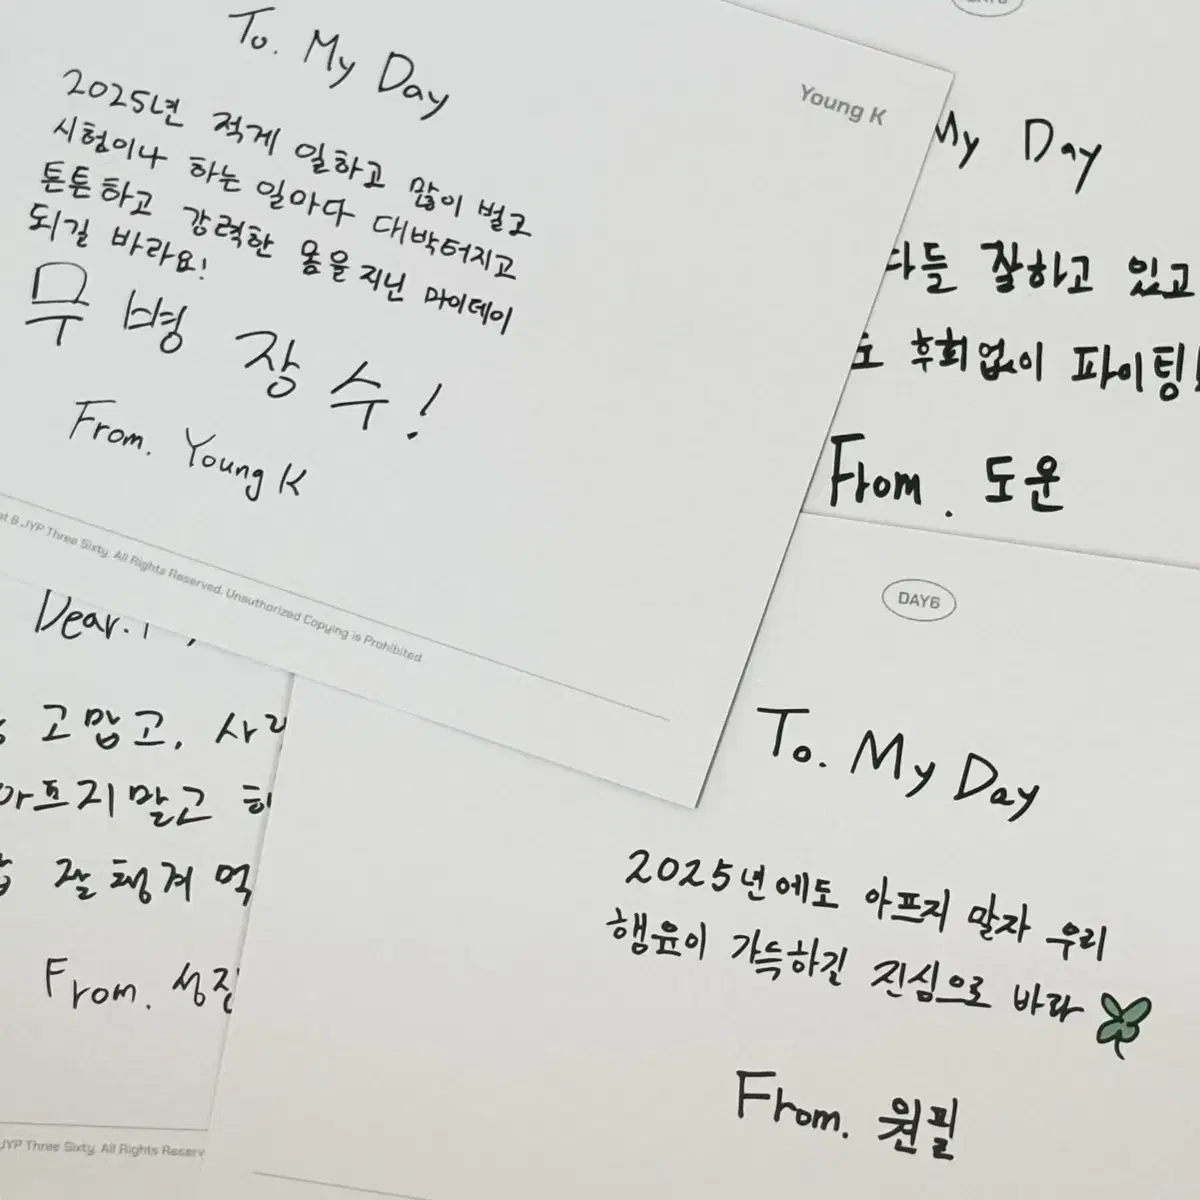 To. My Day
Young K
2025년 적게 일하고 많이 벌고
시험이나 하는 일마다 대박터지고
튼튼하고 강력한 몸을 지닌 마이데이
되길 바라요!
무병장수!
From. Young K
JYP Three Sixty. All Rights Reserved. Unauthorized Copying is Prohibited
My Day
다들 잘하고 있고
후회없이 파이팅!
From. 도운
Dear.
고맙고,
아프지말고
잘 챙겨 먹
From. 성진
JYP Three Sixty. All Rights
DAY6
To. My Day
2025년에도 아프지 말자 우리
행운이 가득하길 진심으로 바라
From. 원필